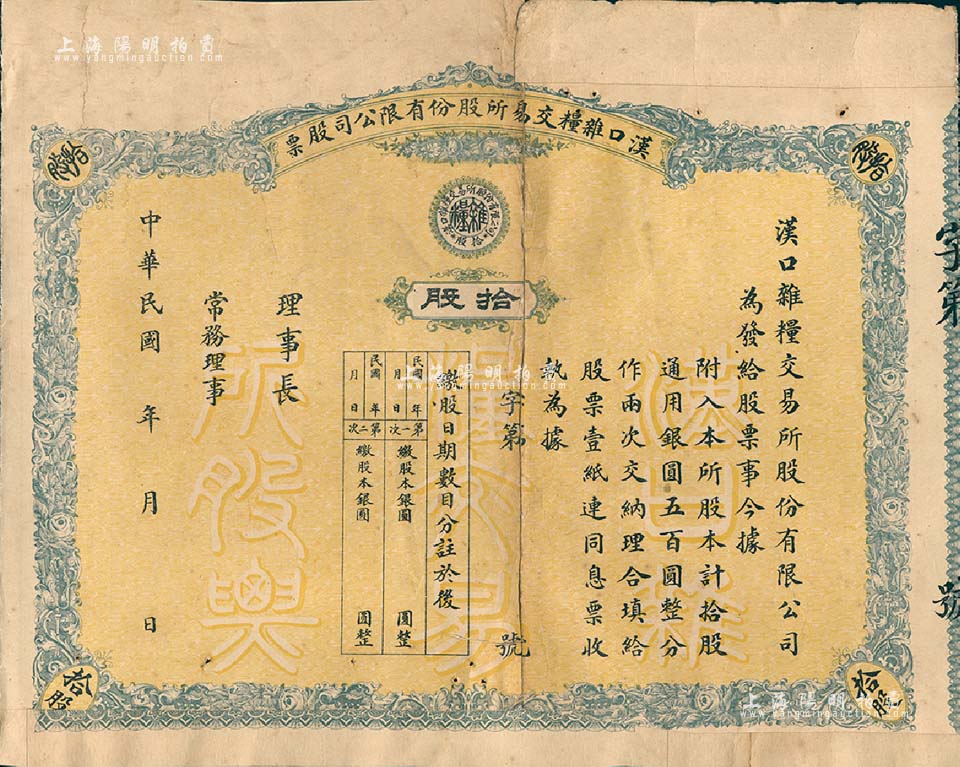 上海陽明拍賣
www.yangmingauction.com
漢口雜糧交易所股份有限公司股票
拾股
拾股
雜糧
拾股
拾股
漢口雜糧交易所股份有限公司
為發給股票事今據
附入本所股本計拾股
通用銀圓五百圓整分
作兩次交納理合填給
股票壹紙連同息票收
執為據
字第 號
繳股日期數目分註於後
民國 年 月 日 第一次 繳股本銀圓 圓整
民國 年 月 日 第二次 繳股本銀圓 圓整
理事長
常務理事
中華民國 年 月 日
漢口雜
糧交易
所股票
字第 號
拾股
拾股
上海陽明拍賣
www.yangmingauction.com
上海陽明拍賣
www.yangmingauction.com